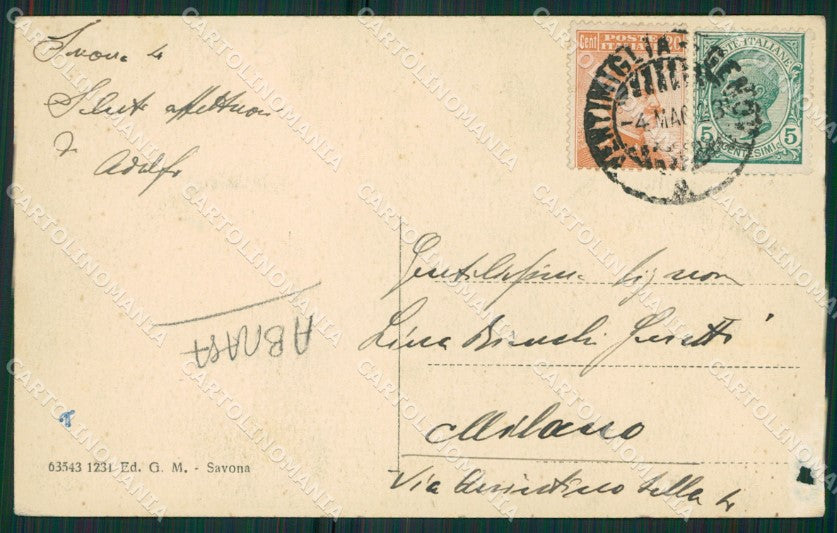 Savona 4
Saluti affettuosi
Adolfo
Cent POSTE 20
ITALIANE
VENTIMIGLIA - GENOVA
-4 MAG
POSTE ITALIANE
5 5
CENTESIMI
Gentilissima Signora
Lina Bianchi
Milano
Via 4
63543 1231 Ed. G. M. - Savona
CARTOLINOMANIA